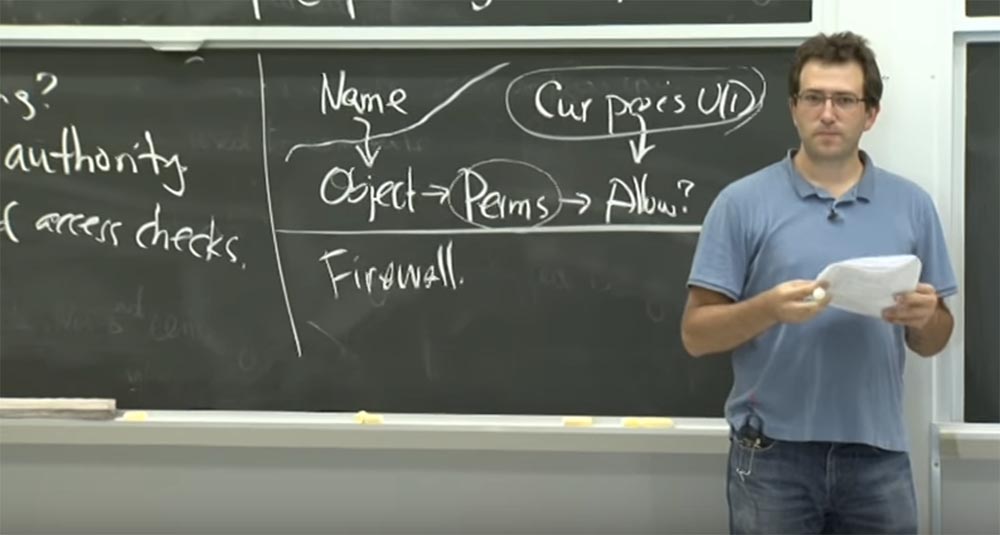 g?
authority.
access checks.
Name
Cur proc's UID
Object → Perms → Allow?
Firewall.